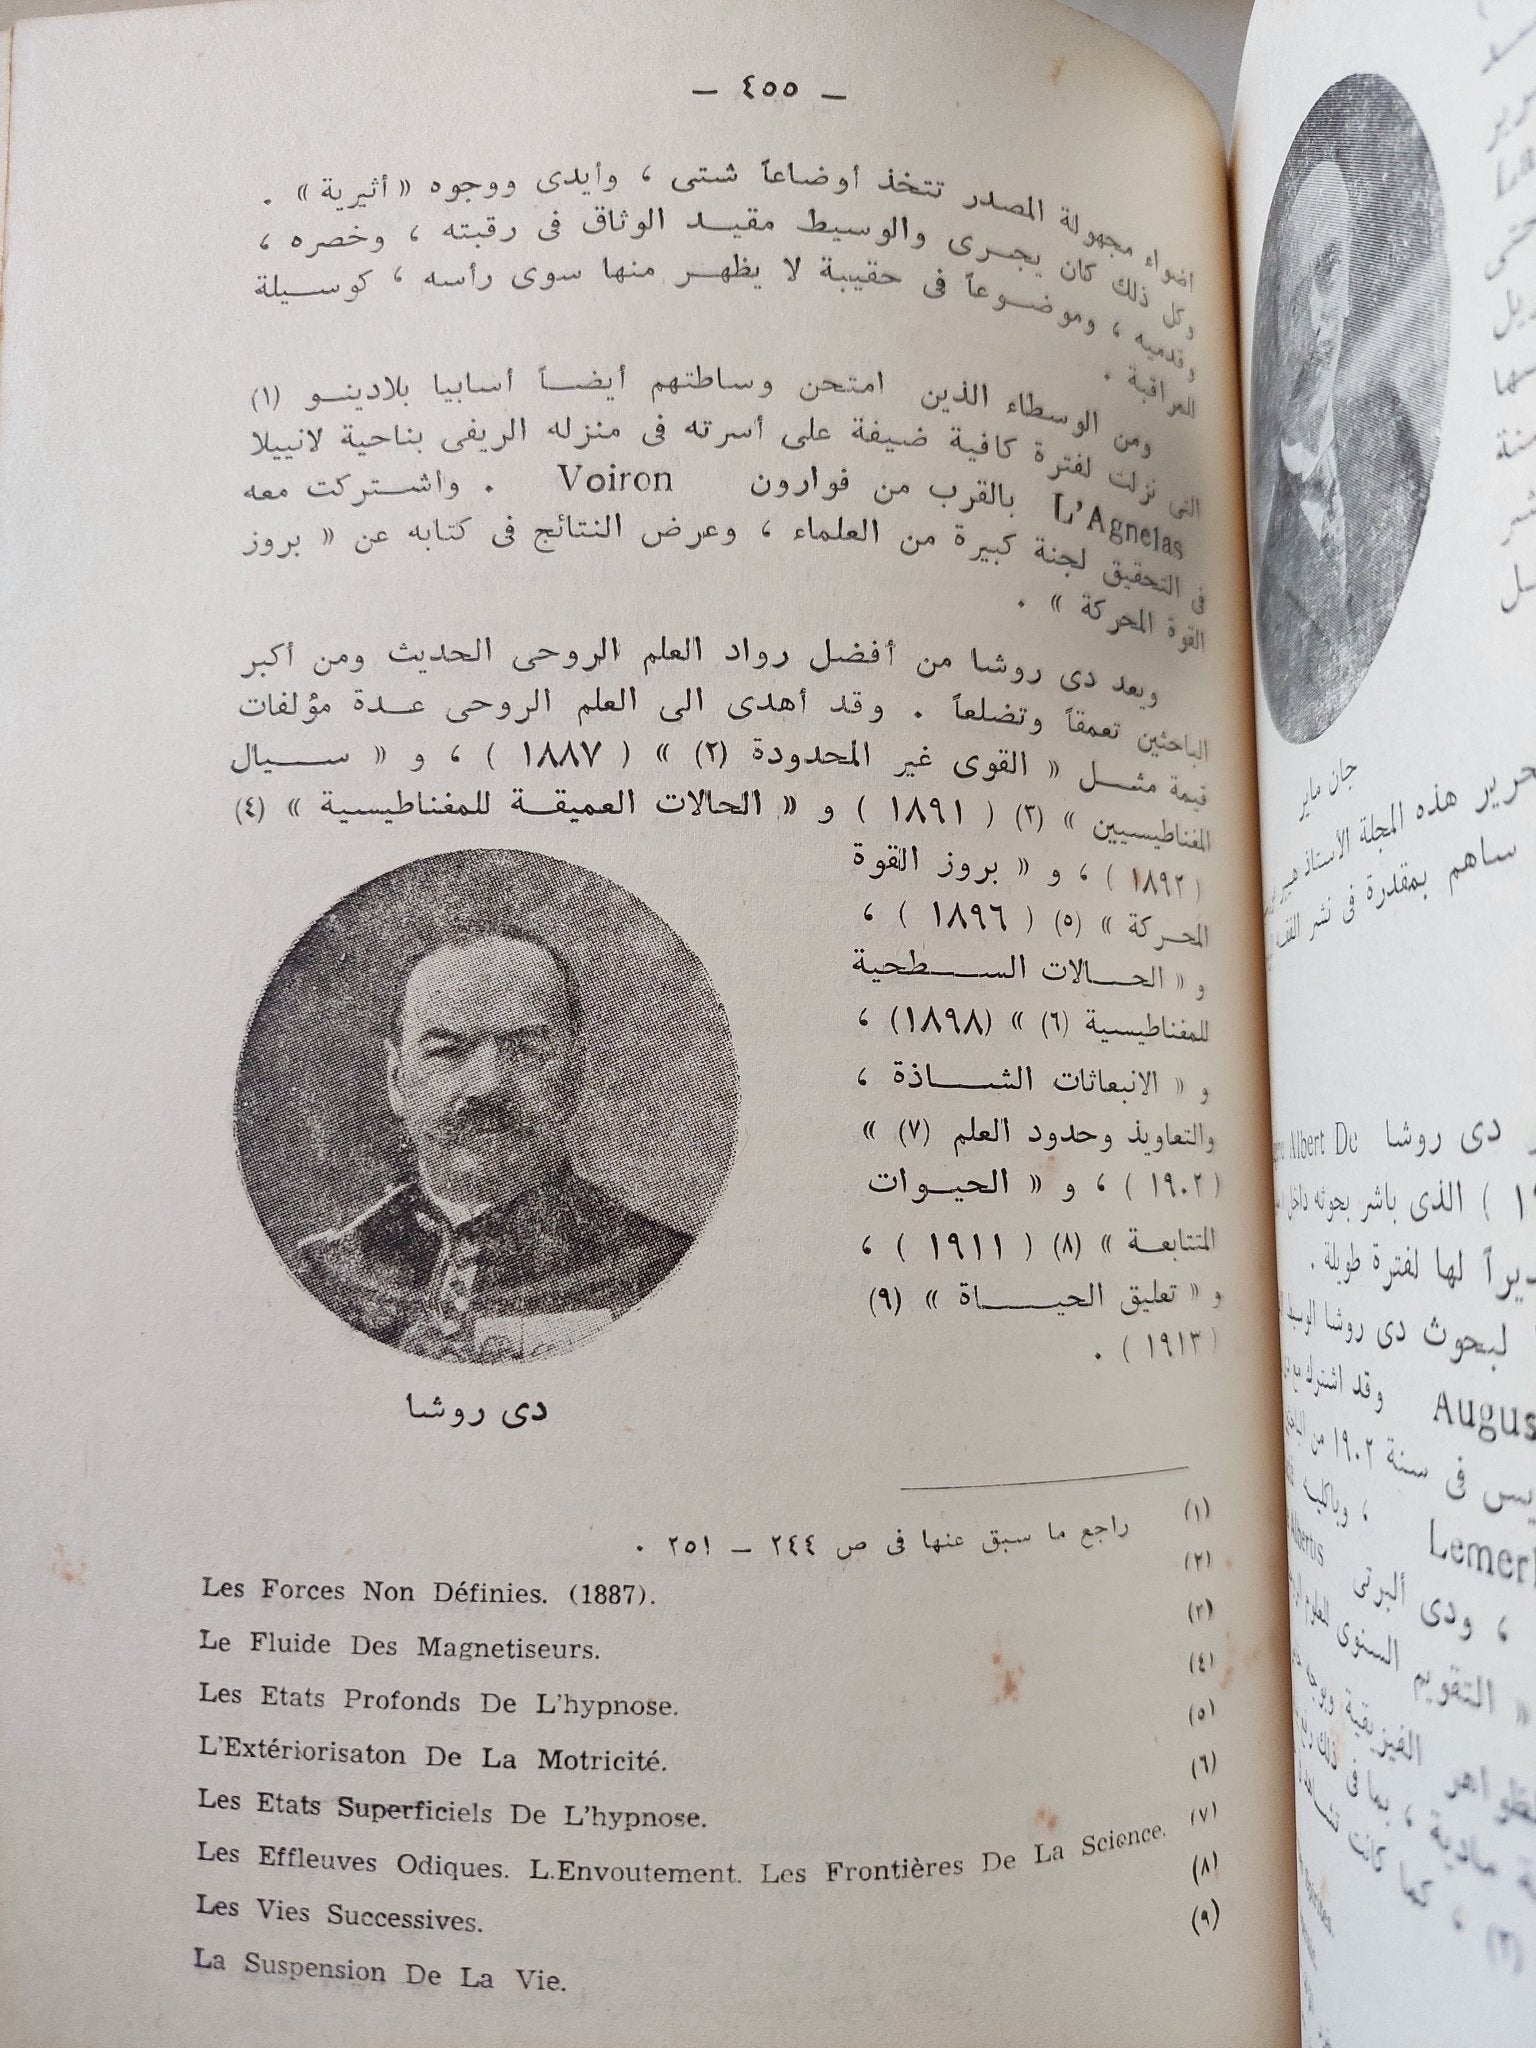 — ٤٥٥ —
اضواء مجهولة المصدر تتخذ أوضاعاً شتى ، وأيدى ووجوه « أثيرية » .
وكل ذلك كان يجرى والوسيط مقيد الوثاق فى رقبته ، وخصره ،
وقدميه ، وموضوعاً فى حقيبة لا يظهر منها سوى رأسه ، كوسيلة
للمراقبة .
ومن الوسطاء الذين امتحن وساطتهم أيضاً أسابيا بلادينو (١)
التى نزلت لفترة كافية ضيفة على أسرته فى منزله الريفى بناحية لانييلا
L'Agnelas بالقرب من فوارون Voiron . واشتركت معه
فى التحقيق لجنة كبيرة من العلماء ، وعرض النتائج فى كتابه عن « بروز
القوة المحركة » .
ويعد دى روشا من أفضل رواد العلم الروحى الحديث ومن أكبر
الباحثين تعمقاً وتضلعاً . وقد أهدى الى العلم الروحى عدة مؤلفات
قيمة مثل « القوى غير المحدودة (٢) » ( ١٨٨٧ ) ، و « سيال
المغناطيسيين » (٣) ( ١٨٩١ ) و « الحالات العميقة للمغناطيسية » (٤)
( ١٨٩٢ ) ، و « بروز القوة
المحركة » (٥) ( ١٨٩٦ ) ،
و « الحالات السطحية
للمغناطيسية (٦) » (١٨٩٨) ،
و « الانبعاثات الشاذة ،
والتعاويذ وحدود العلم (٧) »
( ١٩٠٢ ) ، و « الحيوات
المتتابعة » (٨) ( ١٩١١ ) ،
و « تعليق الحياة » (٩)
( ١٩١٣ ) .
دى روشا
(١) راجع ما سبق عنها فى ص ٢٤٤ — ٢٥١ .
(٢) Les Forces Non Définies. (1887).
(٣) Le Fluide Des Magnetiseurs.
(٤) Les Etats Profonds De L'hypnose.
(٥) L'Extériorisaton De La Motricité.
(٦) Les Etats Superficiels De L'hypnose.
(٧) Les Effleuves Odiques. L.Envoutement. Les Frontières De La Science.
(٨) Les Vies Successives.
(٩) La Suspension De La Vie.
جان ماير
تحرير هذه المجلة الأستاذ
ساهم بمقدرة فى نشر
دى روشا Albert De
الذى باشر بحوثه داخل
لها لفترة طويلة .
لبحوث دى روشا
وقد اشترك مع
فى سنة ١٩٠٢ من
، ودى ألبرتى
« التقويم السنوى للعلوم